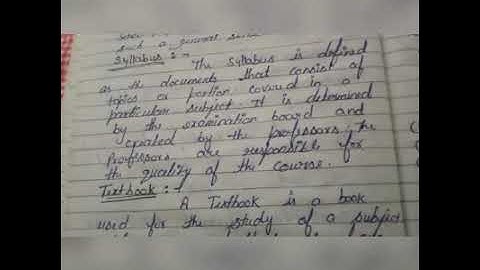 such a general
Syllabus :-
The Syllabus is defined
as the documents that consist of
topics a portion covered in a
particular subject. It is determined
by the examination board and
created by the professors. The
Professors are responsible for
the quality of the course.
Textbook :-
A Textbook is a book
used for the study of a subject